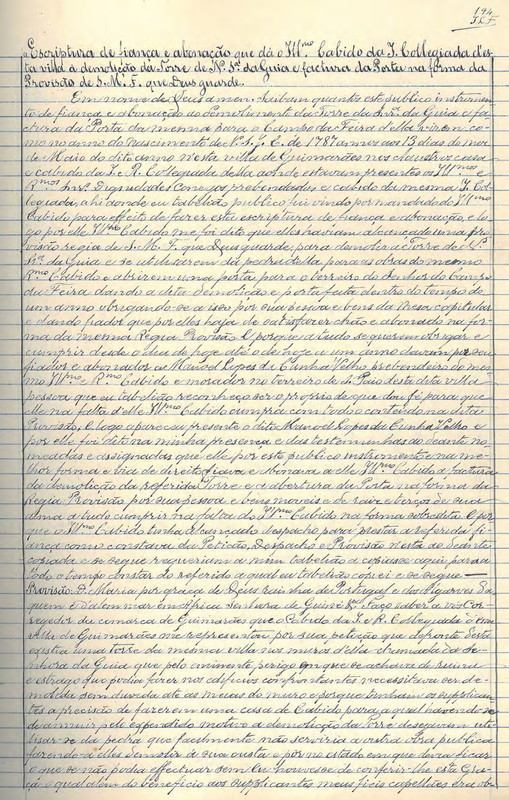 194
Escriptura de fiança e abonação que dá o Illmo. Cabido da I. Collegiada d'es-
ta villa á demolição da Torre de N.ª Sr.ª da Guia e factura da Porta na forma da
Provisão de S. M. F. que Deus guarde.
Em nome de Deus amen. Saibam quantos este publico instrumen-
to de fiança e abonação ao demolimento da Torre da Snr.ª da Guia e fac-
tura da Porta da mesma para o Campo da Feira della virem, co-
mo no anno do Nascimento de N. S. J. C. de 1787 annos aos 13 dias do mez
de Maio do dito anno n'esta villa de Guimarães nos claustros casa
e cabido da I. e R. Collegiada della aonde estavam presentes os Illmos e
Rmos Snrs. Dignidades Conegos prebendados e cabido da mesma I. Col-
legiada, ahi aonde eu tabellião publico fui vindo por mandado do Illmo
Cabido para effeito de fazer esta escriptura de fiança e abonação, e lo-
go por elle Illmo Cabido me foi dito que elles haviam alcançado uma pro-
visão regia de S. M. F. que Deus guarde, para demolir a Torre de N.ª
Sr.ª da Guia e se utilisarem da pedra della para as obras do mesmo
Rmo Cabido e abrirem uma porta para o terreiro do Senhor do Campo
da Feira dando a dita demolição e porta feita dentro do tempo de
um anno obrigando-se a isso por sua pessoa e bens da Mesa capitular
e dando fiador que por elles haja de satisfazer chão e abonado na for-
ma da mesma Regia Provisão. E porque a tudo se querem obrigar e
cumprir desde o dia de hoje até o de hoje a um anno davam por seu
fiador e abonador a Manoel Lopes da Cunha Velho prebendeiro do mes-
mo Illmo e Rmo Cabido e morador no terreiro de S. Paio desta dita villa
pessoa que eu tabellião reconheço ser o proprio de que dou fé para que
elle na falta d'elle Illmo Cabido cumpria com todo o conteudo na dita
Provisão. E logo appareceu presente o dito Manoel Lopes da Cunha Velho e
por elle foi dito na minha presença e das testemunhas ao deante no-
meadas e assignadas que elle por este publico instromento e na me-
lhor forma e via de direito fiava e abonava a elle Illmo Cabido a factura
da demolição da referida Torre e a abertura da Porta na forma da
Regia Provisão por sua pessoa e bens moveis e de raiz e terços de sua
alma a tudo cumprir na falta do Illmo Cabido na forma sobredita. E por
que o Illmo Cabido tinha alcançado despacho para prestar a referida fi-
ança como constava da Petição, Despacho e Provisão n'esta ao deante
copiada e se segue requeriam a mim tabellião a copiasse aqui para a
todo o tempo constar do referido a qual eu tabellião copiei e se segue
Provisão. D. Maria por graça de Deus rainha de Portugal e dos Algarves da-
quem e dalem mar em Africa Senhora de Guiné &ª. Faço saber a vós Cor-
regedor da comarca de Guimarães que o Cabido da I. e R. Collegiada d'essa
villa de Guimarães me representou por sua petição que defronte desta
existia uma torre da mesma villa nos muros d'ella chamada da Se-
nhora da Guia que pelo eminente perigo em que se achava de ruina
e estrago que podia fazer nos edificios confrontantes necessitava ser de-
molida sem duvida até as meias do muro e porque tinham os supplican-
tes a precisão de fazerem uma casa de Cabido para a qual havendo-se
de annuir pelo expendido motivo a demolição da Torre desejavam utili-
lisar-se da pedra que facilmente não serviria a outra obra publica
fazendo-a elles demolir á sua custa e pôr no estado em que devia ficar
o que se não podia effectuar sem Eu houvesse de conferir-lhe esta Gra-
ça e qual alem do beneficio aos supplicantes meus fieis capellães era ob-